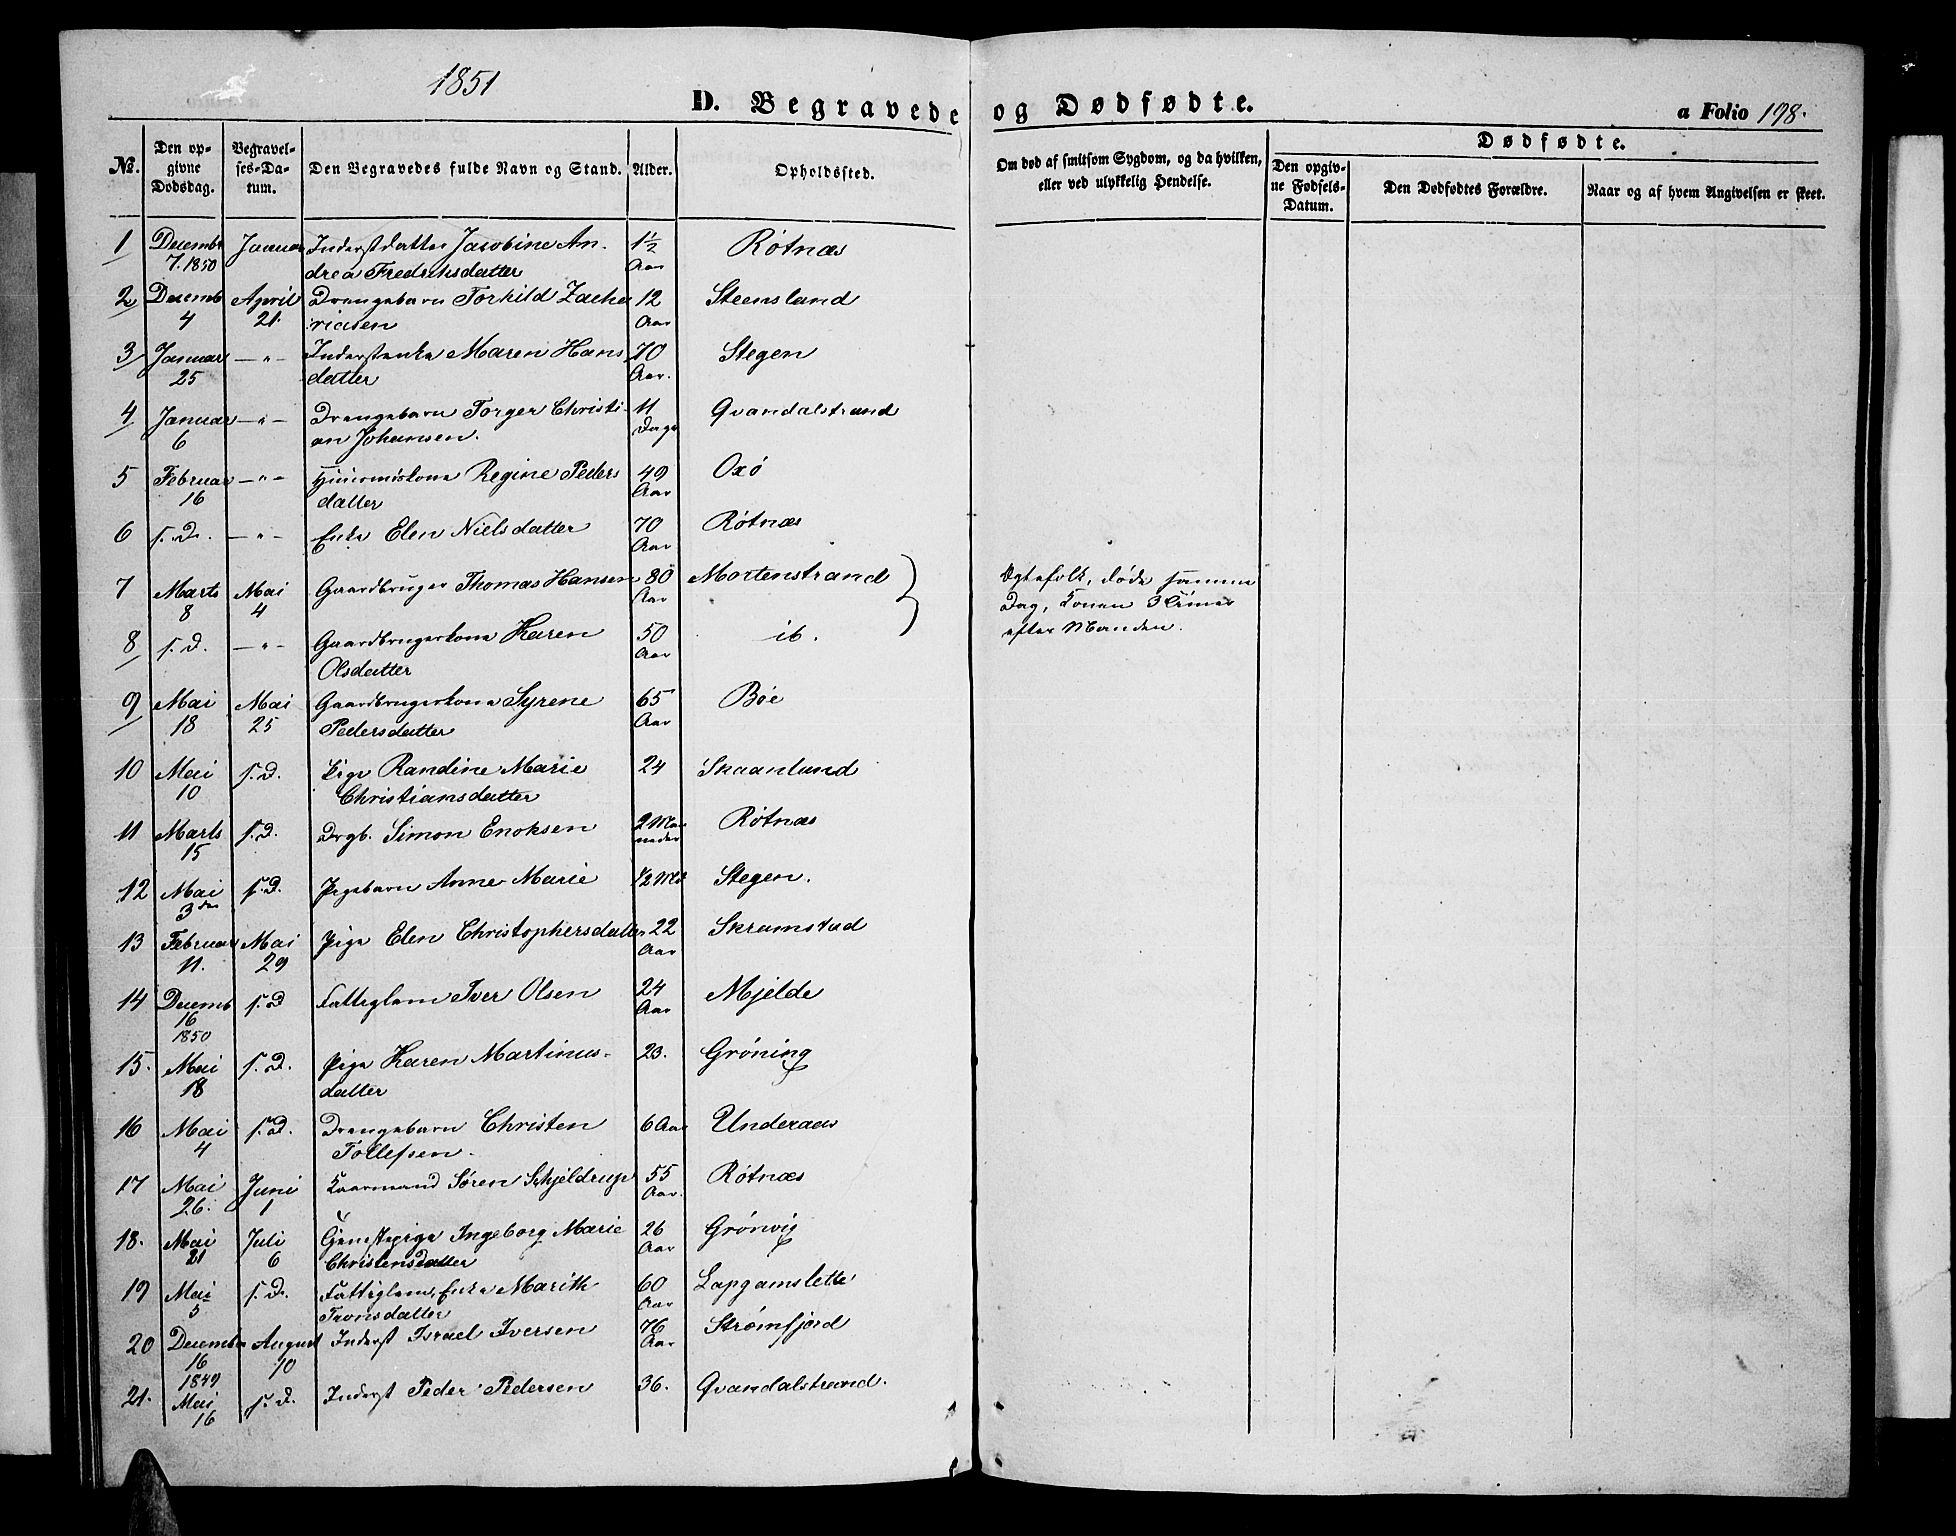 1851
D. Begravede og Dødfødte.
a Folio 198.
No.
Den opgivne Dødsdag.
Begravelses-Datum.
Den Begravedes fulde Navn og Stand.
Alder.
Opholdssted.
Om død af smitsom Sygdom, og da hvilken, eller ved ulykkelig Hendelse.
Dødfødte.
Den opgivne Fødsels-Datum.
Den Dødfødtes Forældre.
Naar og af hvem Angivelsen er skeet.
1 Decembr Januar Inderstdatter Jacobine An- 1½ Røtnæs
7. 1850 drea Fredriksdatter Aar
2 Decemb April Drengebarn Torkild Zacha 12 Steensland
4 21. riasen Aar
3 Januar -"- Inderstenke Maren Hans 70 Stegen
25 datter Aar.
4 Januar -"- Drengebarn Torger Christi- 11 Qvandalstrand
6 an Johansen. Dage
5 Februar -"- Regine Peders 49 Oxø
16 datter Aar
6 s. D. -"- Enke Elen Nielsdatter 70 Røtnæs
Aar
7 Marts Mai Gaardbruger Thomas Hansen 80 Mortenstrand } Ægtefolk, døde samme
8 4 Aar Dag, Konen 3 Timer
8 s. D. -"- Gaardbrugerkone Karen 50 ib. efter Manden.
Olsdatter Aar
9 Mai Mai Gaardbrugerkone Syrene 65 Bøe
18 25 Pedersdatter Aar
10 Mai s. D. Pige Randine Marie 24 Skaanland
10 Christiansdatter
11 Marts s. D. Drgb. Simon Enoksen 2 Maa Røtnæs
15 neder
12 Mai s. D. Pigebarn Anne Marie ½ Md Stegen.
3den
13 Februar Mai Pige Elen Christophersdatter 22 Skramstad
11. 29 Aar
14 Decemb s. D Fattiglem Iver Olsen 24 Mjelde
16 Aar
1850
15. Mai s. D. Pige Karen Martinus- 23. Grøning
18 datter
16 Mai s. D. Drengebarn Christen 6 Aar Underaas
4 Tollefsen.
17 Mai Juni Kaarmand Søren Schjeldrup 55 Røtnæs
26. 1 Aar.
18. Mai Juli Tjenestepige Ingeborg Marie 26 Grønvig
21 6 Christensdatter Aar
19 Mai s. D. Fattiglem, Enke Marith 60 Lapgamslette
5 Tronsdatter Aar
20 Decembr August Inderst Israel Iversen 76 Strømfjord
16 10 Aar
1849
21. Mai s. D. Inderst Peder Pedersen 36. Qvandalstrand.
16